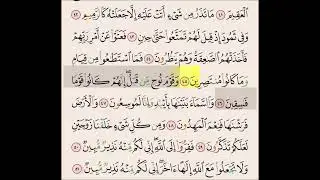 ٱلْعَقِيمَ ٤١ مَا تَذَرُ مِن شَىْءٍ أَتَتْ عَلَيْهِ إِلَّا جَعَلَتْهُ كَٱلرَّمِيمِ ٤٢
وَفِى ثَمُودَ إِذْ قِيلَ لَهُمْ تَمَتَّعُوا۟ حَتَّىٰ حِينٍ ٤٣ فَعَتَوْا۟ عَنْ أَمْرِ رَبِّهِمْ
فَأَخَذَتْهُمُ ٱلصَّٰعِقَةُ وَهُمْ يَنظُرُونَ ٤٤ فَمَا ٱسْتَطَٰعُوا۟ مِن قِيَامٍ
وَمَا كَانُوا۟ مُنتَصِرِينَ ٤٥ وَقَوْمَ نُوحٍ مِّن قَبْلُ إِنَّهُمْ كَانُوا۟ قَوْمًا
فَٰسِقِينَ ٤٦ وَٱلسَّمَآءَ بَنَيْنَٰهَا بِأَيْي۟دٍ وَإِنَّا لَمُوسِعُونَ ٤٧ وَٱلْأَرْضَ
فَرَشْنَٰهَا فَنِعْمَ ٱلْمَٰهِدُونَ ٤٨ وَمِن كُلِّ شَىْءٍ خَلَقْنَا زَوْجَيْنِ
لَعَلَّكُمْ تَذَكَّرُونَ ٤٩ فَفِرُّوٓا۟ إِلَى ٱللَّهِ إِنِّى لَكُم مِّنْهُ نَذِيرٌ مُّبِينٌ ٥٠
وَلَا تَجْعَلُوا۟ مَعَ ٱللَّهِ إِلَٰهًا ءَاخَرَ إِنِّى لَكُم مِّنْهُ نَذِيرٌ مُّبِينٌ ٥١